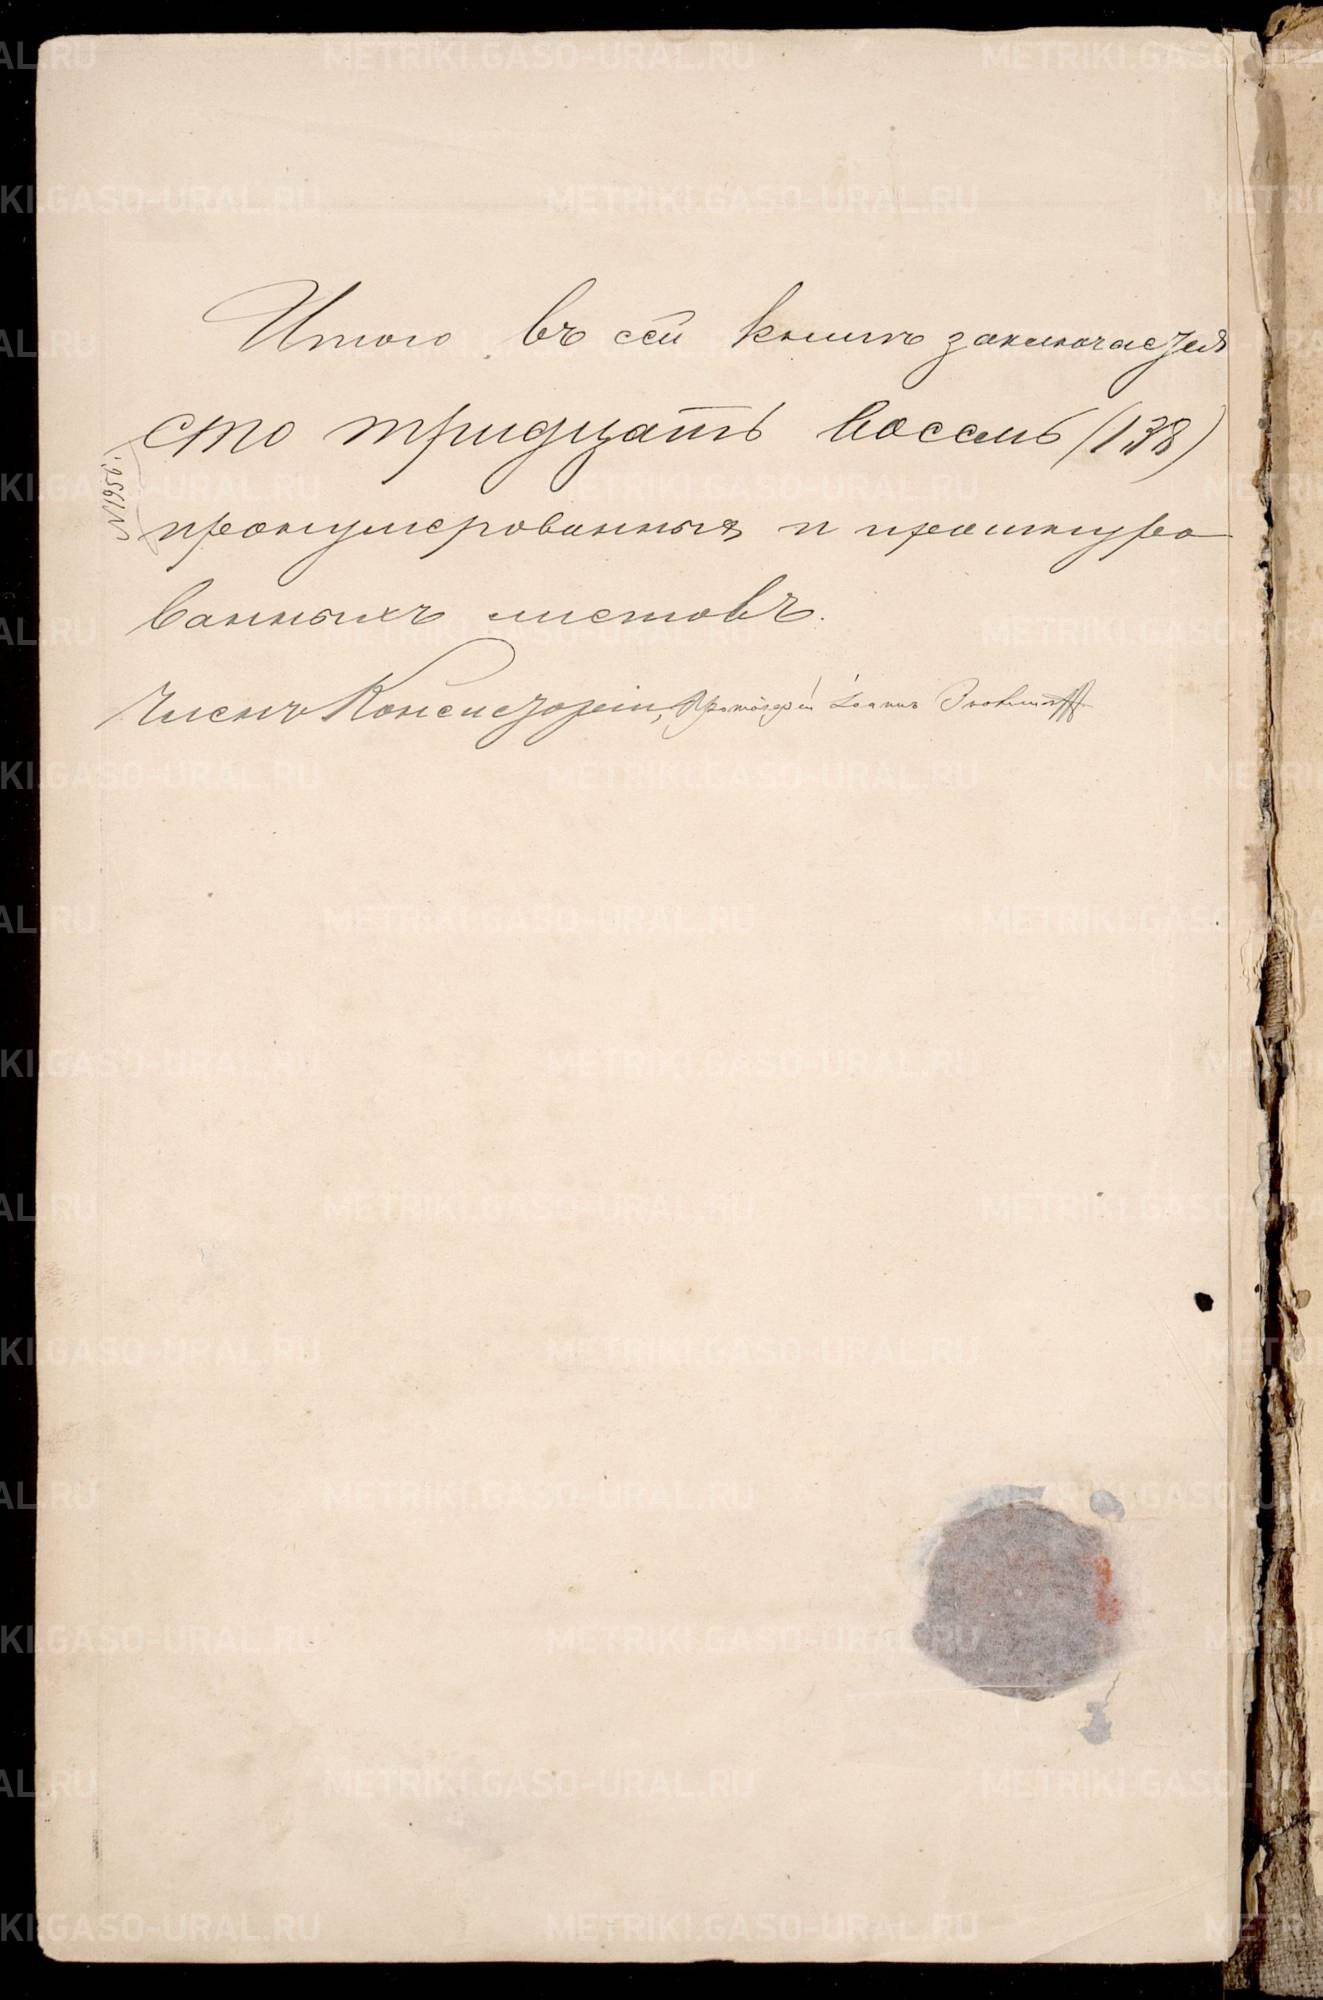 Итого въ сей книгѣ заключается
сто тридцать восемь (138)
№ 1956.
пронумерованныхъ и прошнуро
ванныхъ листовъ.
Членъ Консисторіи, Протоіерей Іоаннъ
METRIKI.GASO-URAL.RU